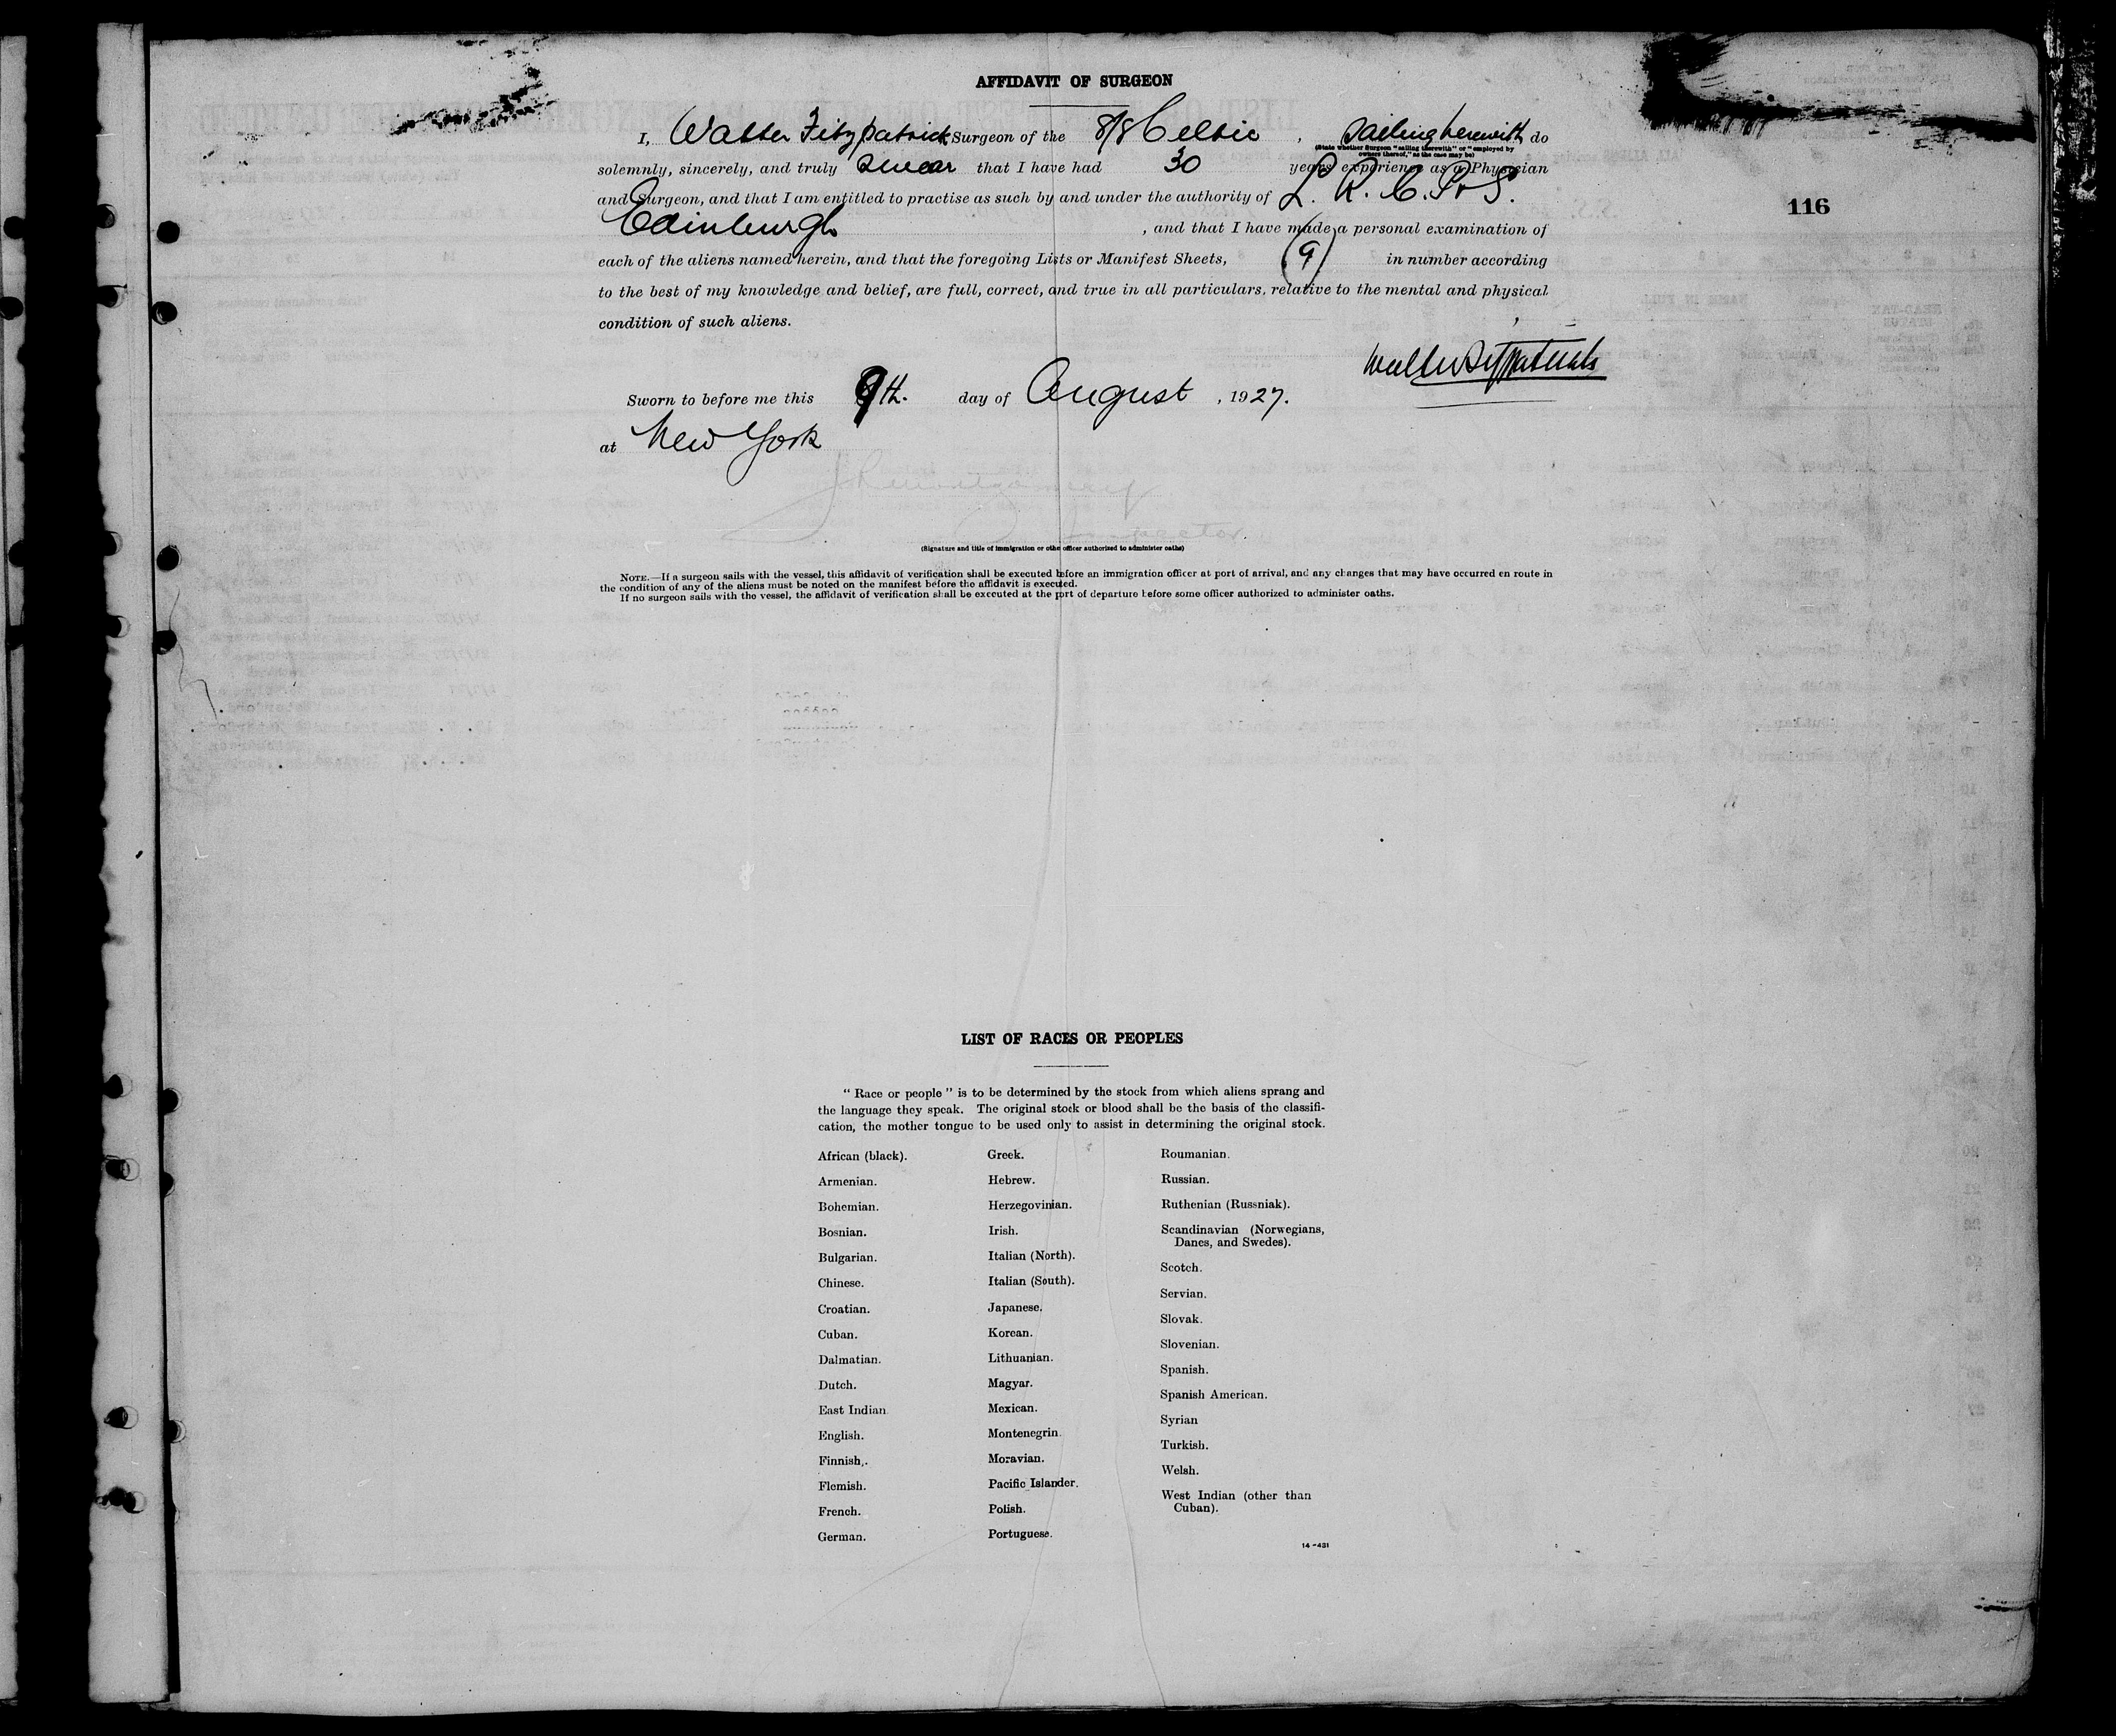 AFFIDAVIT OF SURGEON
I, Walter Fitzpatrick Surgeon of the S/S Celtic , sailing herewith do
(State whether Surgeon "sailing therewith" or "employed by
owners thereof," as the case may be)
solemnly, sincerely, and truly swear that I have had 30 years' experience as a Physician
and Surgeon, and that I am entitled to practise as such by and under the authority of L. R. C. P & S.
Edinburgh , and that I have made a personal examination of
116
each of the aliens named herein, and that the foregoing Lists or Manifest Sheets, (9) in number according
to the best of my knowledge and belief, are full, correct, and true in all particulars, relative to the mental and physical
condition of such aliens.
Walter Fitzpatrick
Sworn to before me this 9th. day of August , 1927.
at New York
Montgomery
Inspector
(Signature and title of immigration or othe officer authorized to administer oaths)
NOTE.—If a surgeon sails with the vessel, this affidavit of verification shall be executed before an immigration officer at port of arrival, and any changes that may have occurred en route in
the condition of any of the aliens must be noted on the manifest before the affidavit is executed.
If no surgeon sails with the vessel, the affidavit of verification shall be executed at the port of departure before some officer authorized to administer oaths.
LIST OF RACES OR PEOPLES
" Race or people " is to be determined by the stock from which aliens sprang and
the language they speak. The original stock or blood shall be the basis of the classifi-
cation, the mother tongue to be used only to assist in determining the original stock.
African (black).
Armenian.
Bohemian.
Bosnian.
Bulgarian.
Chinese.
Croatian.
Cuban.
Dalmatian.
Dutch.
East Indian.
English.
Finnish.
Flemish.
French.
German.
Greek.
Hebrew.
Herzegovinian.
Irish.
Italian (North).
Italian (South).
Japanese.
Korean.
Lithuanian.
Magyar.
Mexican.
Montenegrin.
Moravian.
Pacific Islander.
Polish.
Portuguese.
Roumanian.
Russian.
Ruthenian (Russniak).
Scandinavian (Norwegians,
Danes, and Swedes).
Scotch.
Servian.
Slovak.
Slovenian.
Spanish.
Spanish American.
Syrian
Turkish.
Welsh.
West Indian (other than
Cuban).
14-431